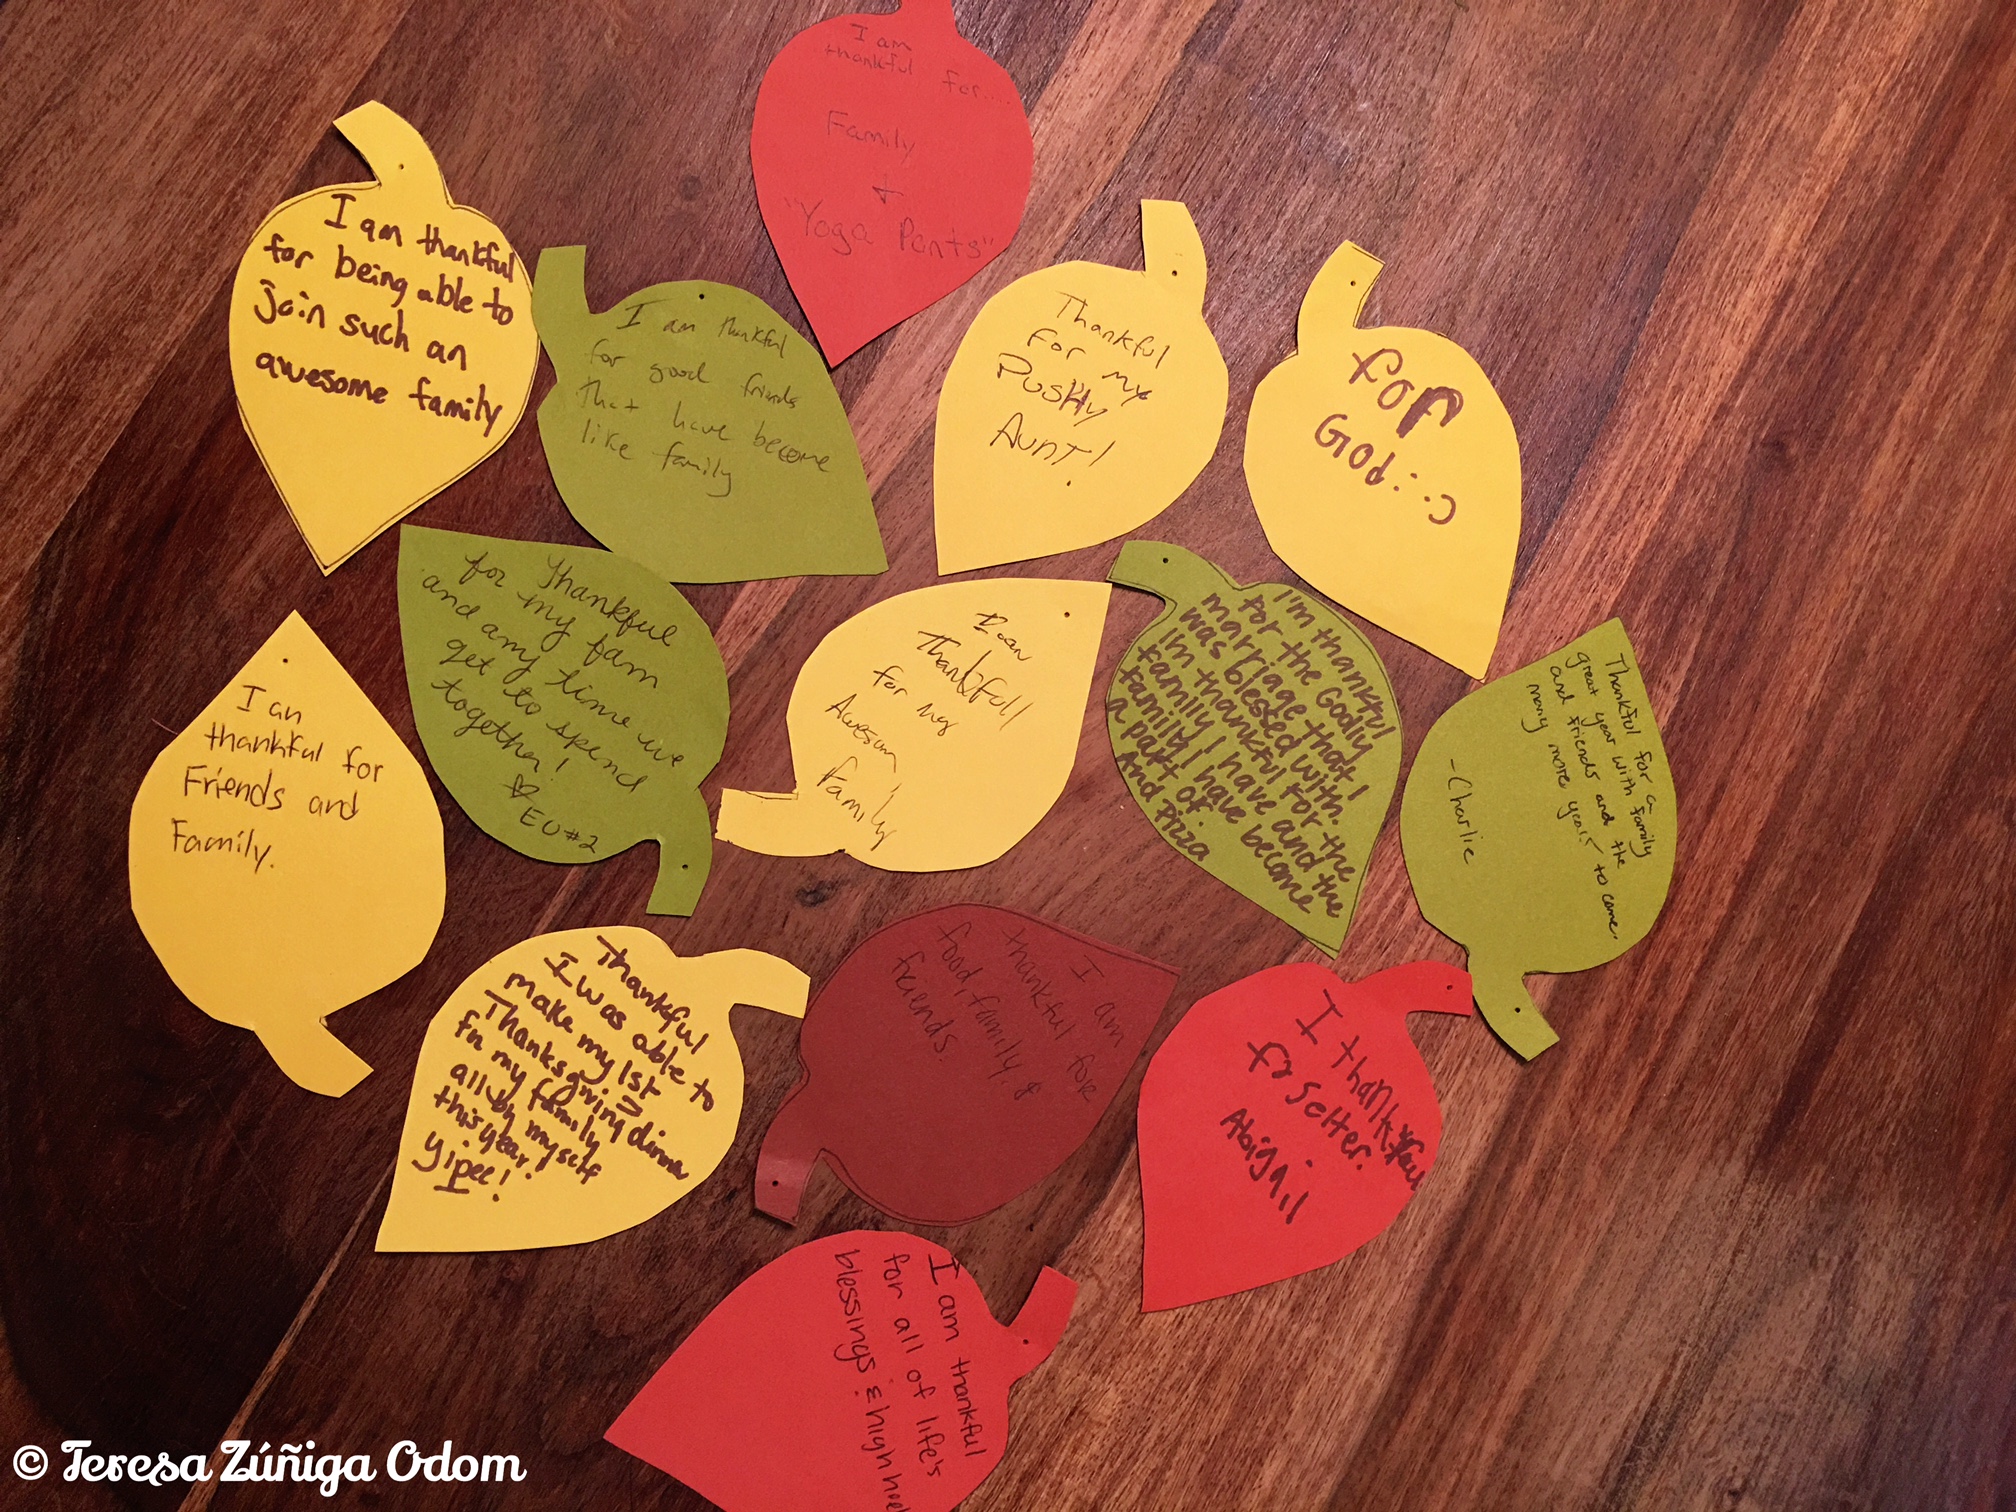 I am
thankful for....
Family
+
"Yoga Pants"
I am thankful
for being able to
join such an
awesome family
I am thankful
for good friends
that have become
like family
Thankful
For my
Aunt!
for
God.:)
Thankful
for my fam
and any time we
get to spend
together!
♡ EU#2
I am
Thankfull
for my
Awesom
family
I'm thankful
for the Godly
marriage that I
was blessed with.
I'm thankful for the
family I have and the
family I have become
a part of.
And Pizza
Thankful for a
great year with family
and friends and the
many more years to come.
-Charlie
I an
thankful for
Friends and
Family.
Thankful
I was able to
make my 1st
Thanksgiving dinner
for my family
all by myself
this year!
Yipee!
I am
thankful for
food, family, &
friends.
I thankful
for
Abigail
I am thankful
for all of life's
blessings & high
© Teresa Zúñiga Odom